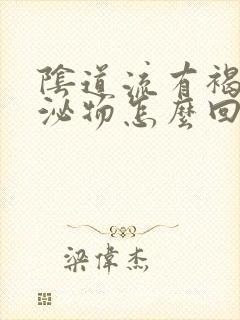 陰道流有褐
泌物怎麼回
梁偉杰